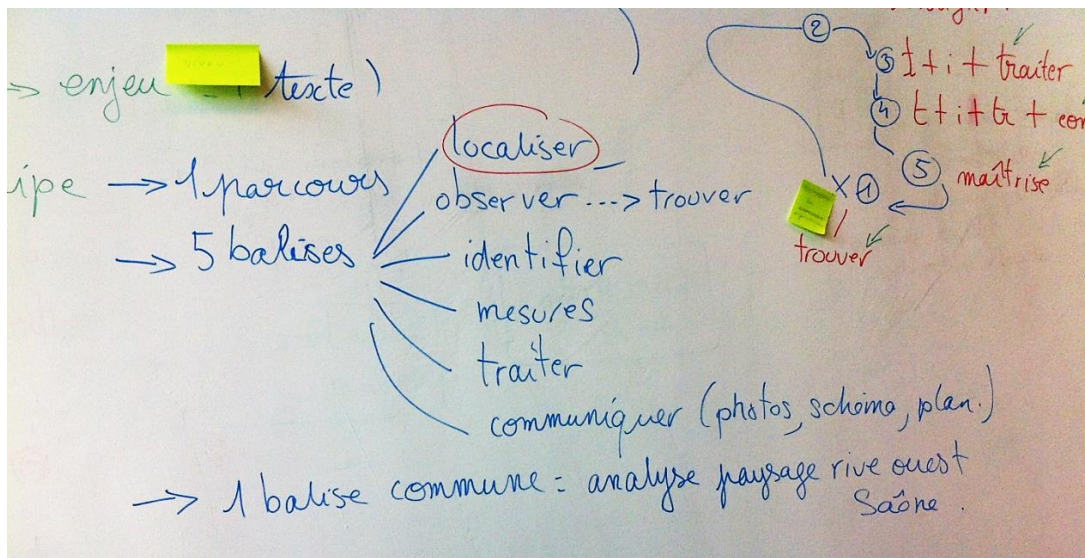 → enjeu texte)
→ 1 parcours
→ 5 balises
localiser
observer ...> trouver
identifier
mesures
traiter
communiquer (photos, schéma, plan.)
→ 1 balise commune = analyse paysage rive ouest
Saône.
2
3 t + i + traiter
4 t + i + tr +
5 maîtrise
X 1
trouver